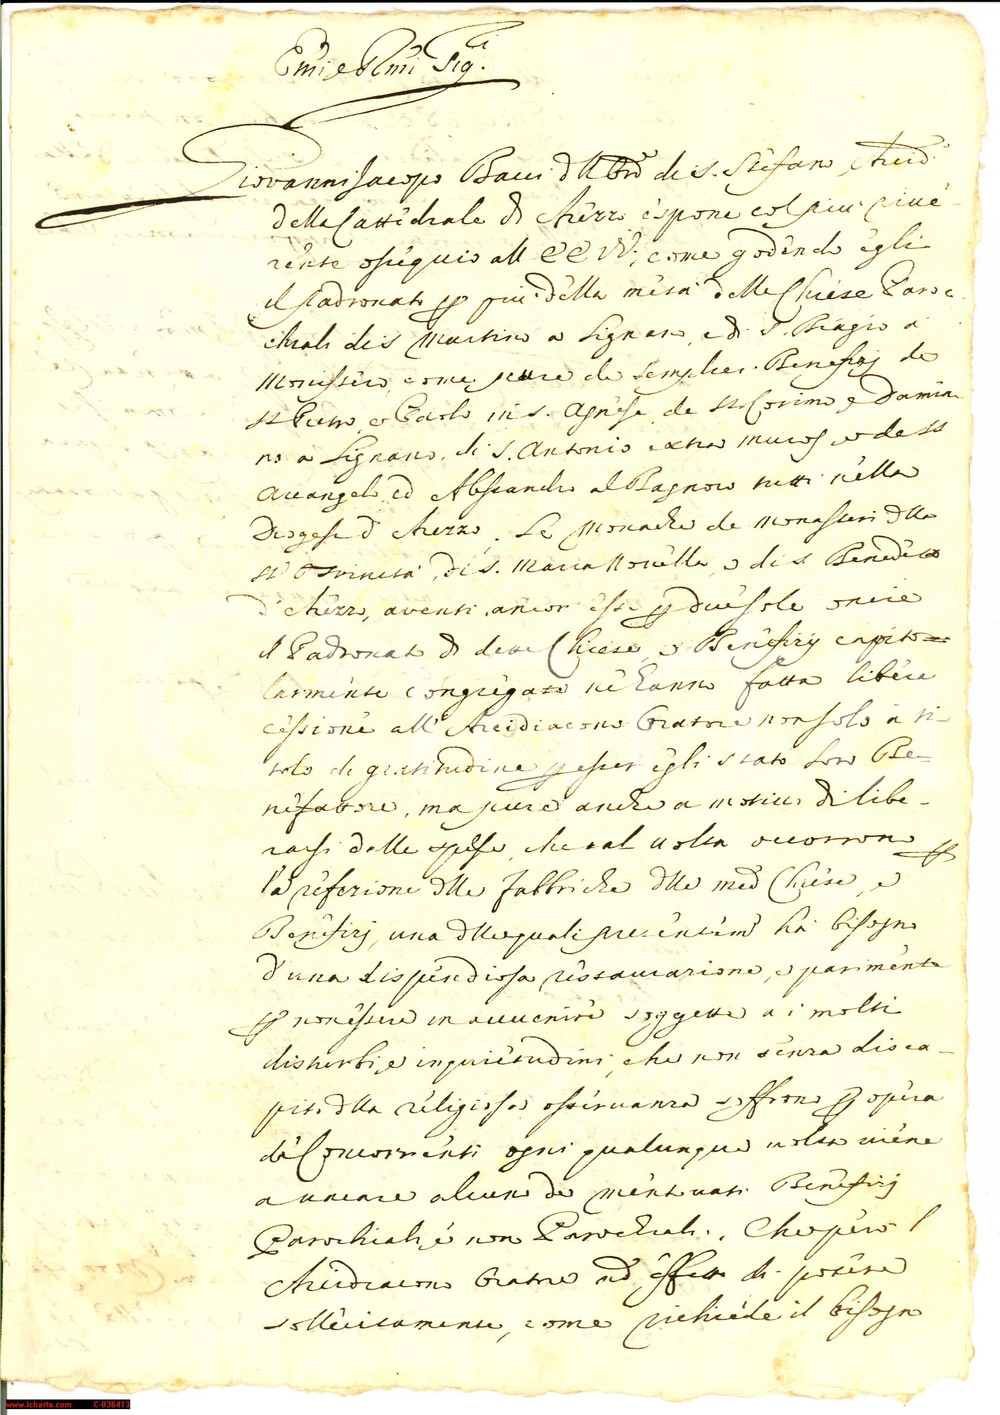 Em̃i e Rm̃i Sig.ri
Giovanni Jacopo Bacci dell'Ord.e di S. Stefano, Arcid.o
della Cattedrale di Arezzo espone col più rive-
rente ossequio all' EE VV, come godendo egli
il Padronato p più della metà delle Chiese Paroc-
chiali di S Martino a Lignano, e di S. Biagio a
Monistero, come pure de semplici Benefizj de
SS Pietro, e Paolo in S. Agnese de SS Cosimo, e Damia-
no a Lignano, di S. Antonio extra muros, e de SS
Arcangelo, ed Alessandro al Bagnoro tutti nella
Diogesi d'Arezzo. Le Monache de Monasteri dlla
SS. Trinità, di S. Maria Novella, e di S Benedetto
d'Arezzo, aventi ancor esse p due sole oncie
il Padronato di dette Chiese, e Benefizj capito-
larmente congregate ne hanno fatta libera
cessione all' Arcidiacono Oratore non solo a ti-
tolo di gratitudine p esser egli stato loro Be-
nefattore, ma pure anche a motivo di libe-
rarsi dalle spese, che tal volta occorrono p
la refezione dlle fabbriche dlle med Chiese, e
Benefizj, una dlle quali presentem ha bisogno
d'una dispendiosa restaurazione, e parimente
p non essere in avvenire soggette a i molti
disturbi, e inquietudini, che non senza disca-
pito dlla religiosa osservanza soffrono p opera
de Concorrenti ogni qualunque volta viene
a vacare alcuno de mentovati Benefizj
Parochiali, e non Parochiali. Che però l'
Arcidiacono Oratore ad effetto di potere
sollecitamente, come richiede il bisogno
www.icharta.com C-036413